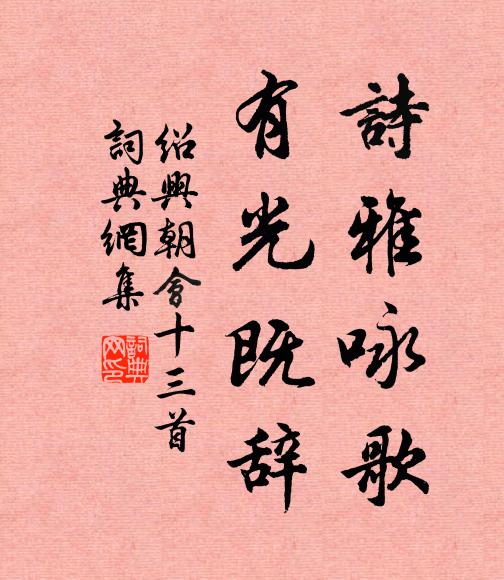 詩雅咏歌
有光既辞
紹興朝會十三首
詞典網集
詞典网印